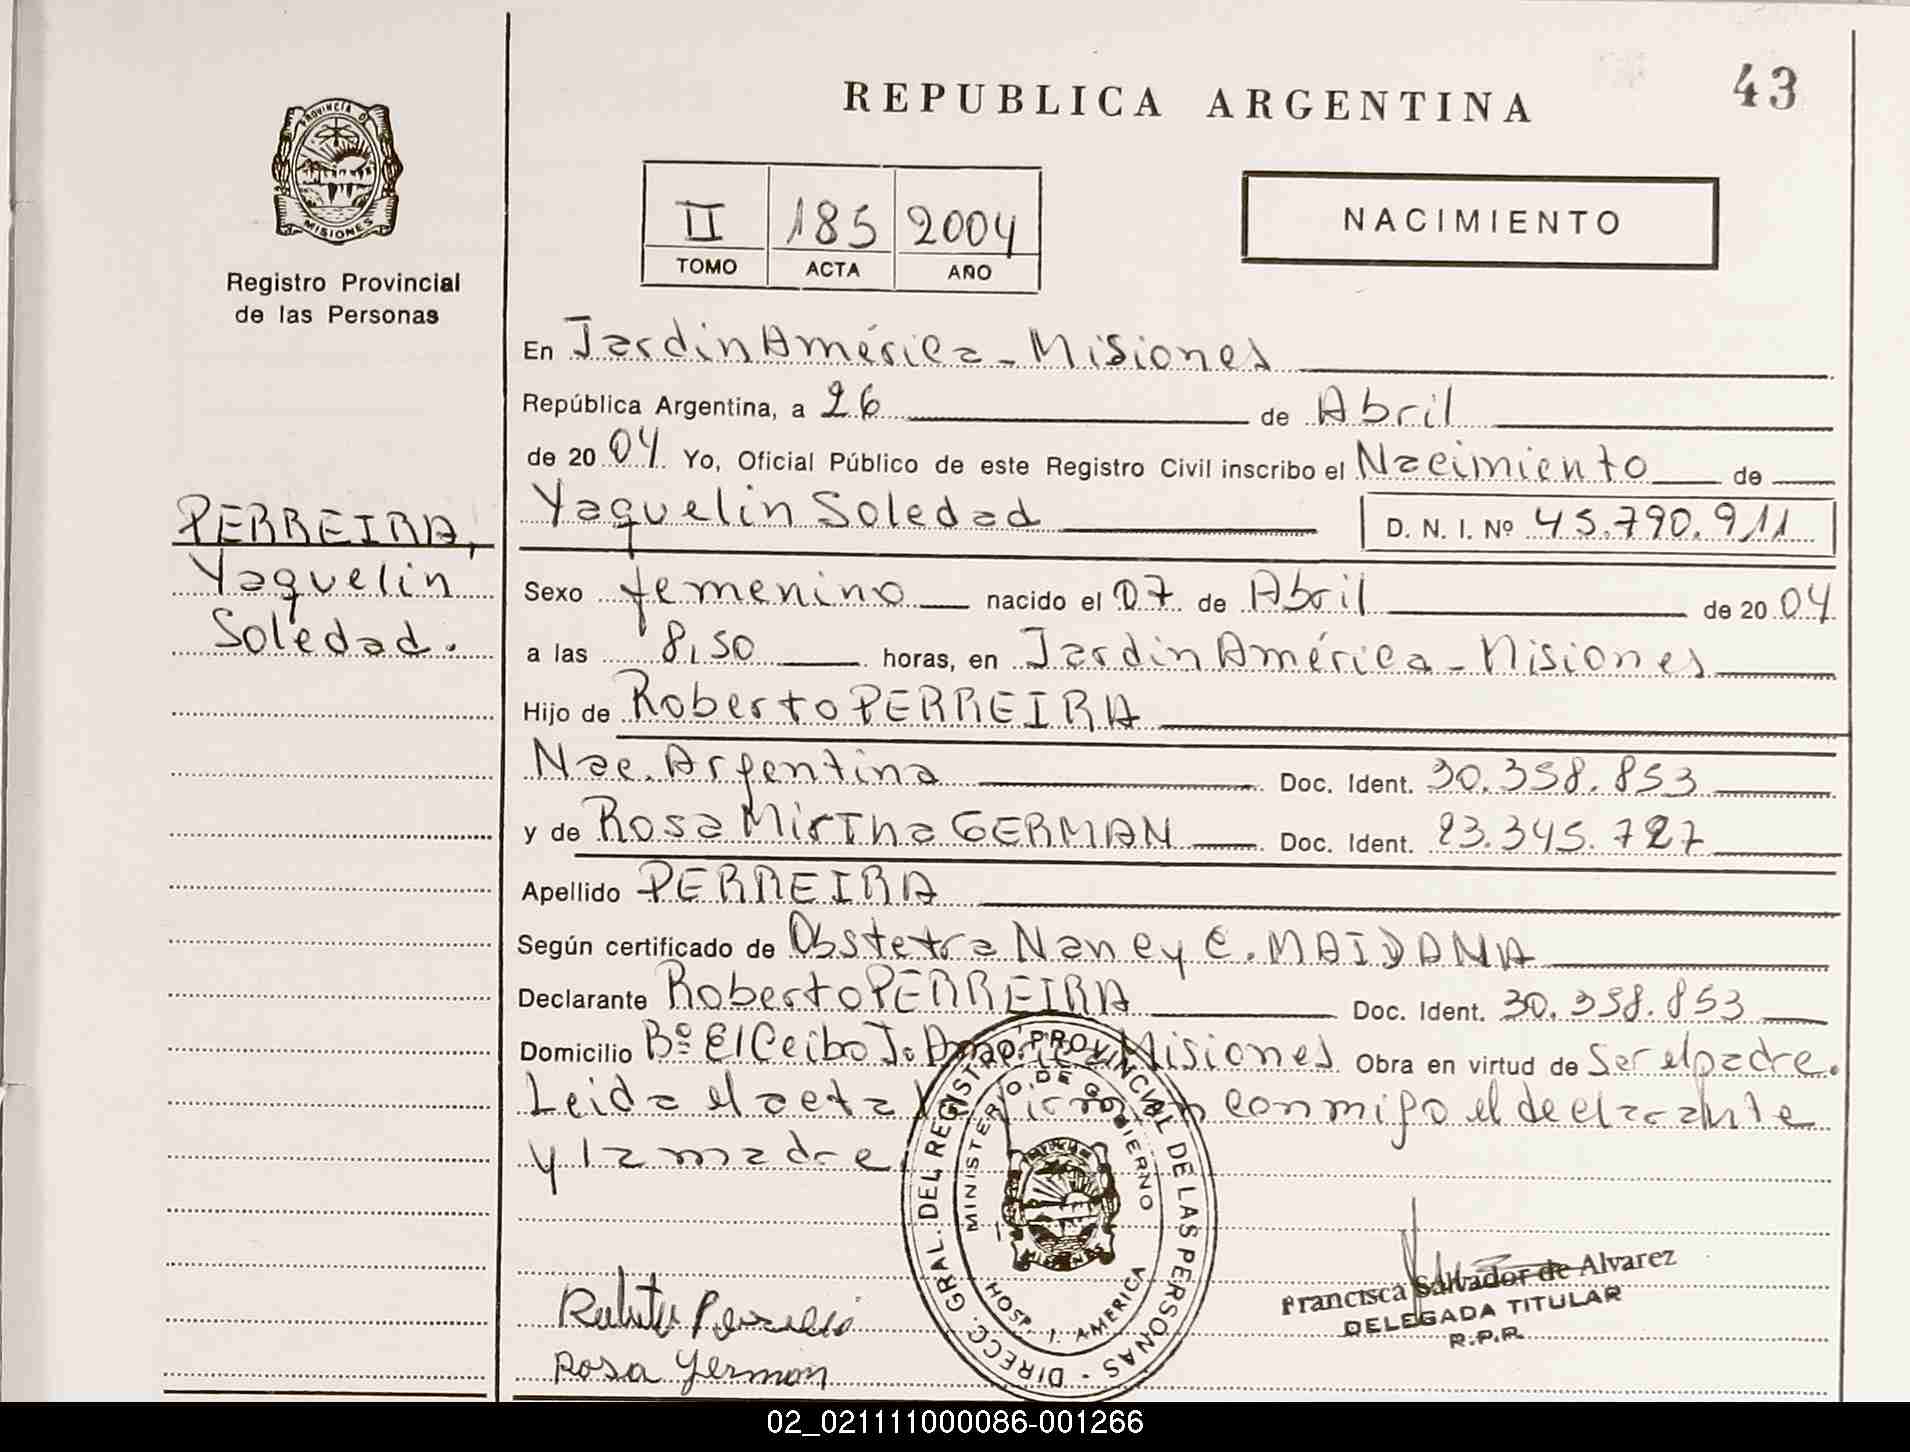 43
REPUBLICA ARGENTINA
PROVINCIA D
MISIONES
Registro Provincial
de las Personas
II 185 2004
TOMO ACTA AÑO
NACIMIENTO
En Jardin América - Misiones
República Argentina, a 26 de Abril
de 2004 Yo, Oficial Público de este Registro Civil inscribo el Nacimiento de
Yaquelin Soledad D. N. I. Nº 45.790.911
PERREIRA,
Yaquelin
Soledad.
Sexo femenino nacido el 07 de Abril de 2004
a las 8,50 horas, en Jardin América - Misiones
Hijo de Roberto PERREIRA
Nac. Argentina Doc. Ident. 30.358.853
y de Rosa Mirtha GERMAN Doc. Ident. 23.345.727
Apellido PERREIRA
Según certificado de Obstetra Nancy C. MAIDANA
Declarante Roberto PERREIRA Doc. Ident. 30.358.853
Domicilio Bº El Ceibo J. América Misiones Obra en virtud de Ser el padre.
Leida el acta firman conmigo el declarante
y la madre
DIRECC. GRAL. DEL REGISTRO PROVINCIAL DE LAS PERSONAS -
MINISTERIO DE GOBIERNO
MISIONES
HOSP. J. AMERICA
Francisca Salvador de Alvarez
DELEGADA TITULAR
R.P.P.
Rosa German
02_021111000086-001266